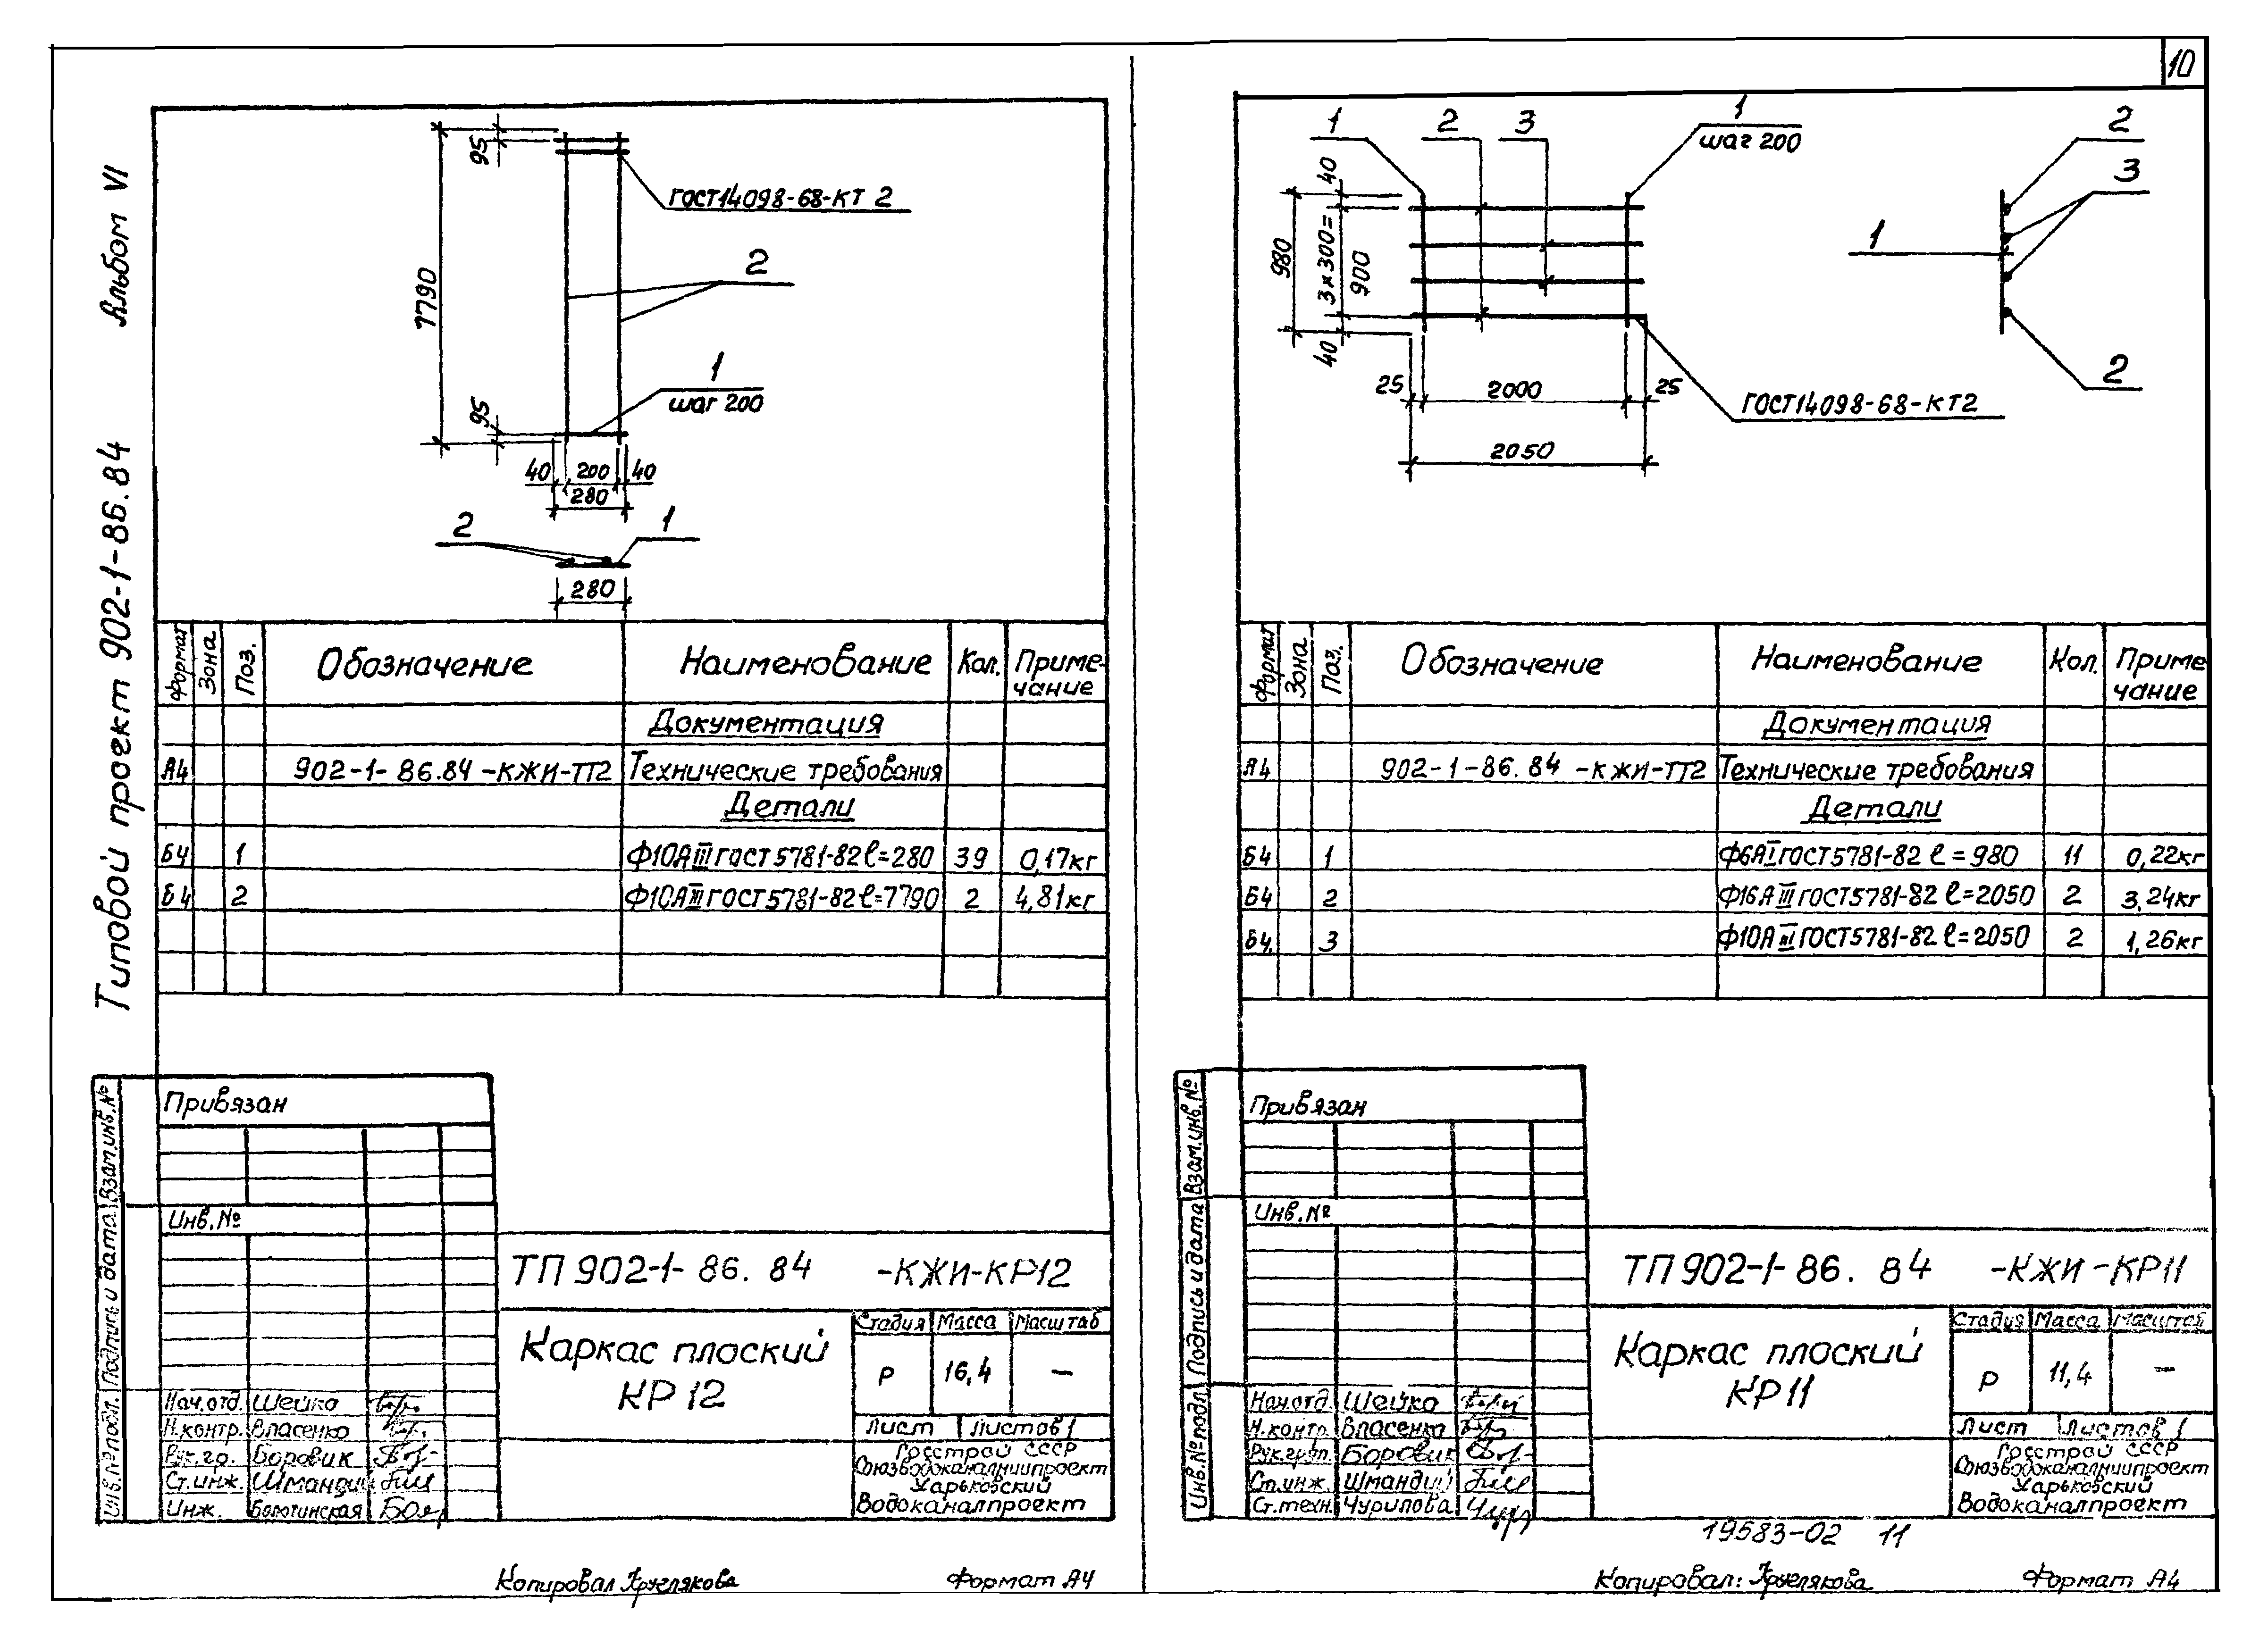 10
Альбом VI
Типовой проект 902-1-86.84
7790
95
ГОСТ14098-68-КТ 2
2
1
шаг 200
95
40 200 40
280
2 1
280
Формат Зона Поз. Обозначение Наименование Кол. Приме-
чание
Документация
А4 902-1-86.84-КЖИ-ТТ2 Технические требования
Детали
Б4 1 Ф10АIII ГОСТ5781-82 ℓ=280 39 0,17кг
Б4 2 Ф10АIII ГОСТ5781-82 ℓ=7790 2 4,81кг
Привязан
Инв.№
Взам.инв.№
Подпись и дата
Инв.№ подл.
ТП 902-1-86.84 -КЖИ-КР12
Каркас плоский
КР 12
Стадия Масса Масштаб
Р 16,4 —
Лист Листов 1
Госстрой СССР
Союзводоканалниипроект
Харьковский
Водоканалпроект
Нач.отд. Шейко
Н.контр. Власенко
Рук.гр. Боровик
Ст.инж. Шмандий
Инж.
Копировал Круглякова Формат А4
1 2 3 1
шаг 200
980
40
3x300=
900
40
25 2000 25
2050
ГОСТ14098-68-КТ2
2
3
1
2
Формат Зона Поз. Обозначение Наименование Кол. Приме
чание
Документация
А4 902-1-86.84-КЖИ-ТТ2 Технические требования
Детали
Б4 1 Ф6АI ГОСТ5781-82 ℓ=980 11 0,22кг
Б4 2 Ф16АIII ГОСТ5781-82 ℓ=2050 2 3,24кг
Б4 3 Ф10АIII ГОСТ5781-82 ℓ=2050 2 1,26кг
Привязан
Инв.№
Взам.инв.№
Подпись и дата
Инв.№ подл.
ТП 902-1-86.84 -КЖИ-КР11
Каркас плоский
КР11
Стадия Масса Масштаб
Р 11,4 —
Лист Листов 1
Госстрой СССР
Союзводоканалниипроект
Харьковский
Водоканалпроект
Нач.отд. Шейко
Н.контр. Власенко
Рук.груп. Боровик
Ст.инж. Шмандий
Ст.техн. Чурилова
19583-02 11
Копировал: Круглякова Формат А4